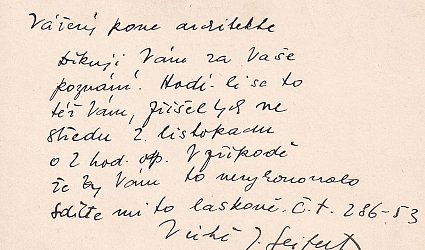 Vážený pane architekte
Děkuji Vám za Vaše
poznání. Hodí-li se to
též Vám, přišel bych ve
středu 2. listopadu
o 2 hod. op. V případě
že by Vám to nevyhovovalo
sdělte mi to laskavě. Č.t. 286-53
J. Seifert